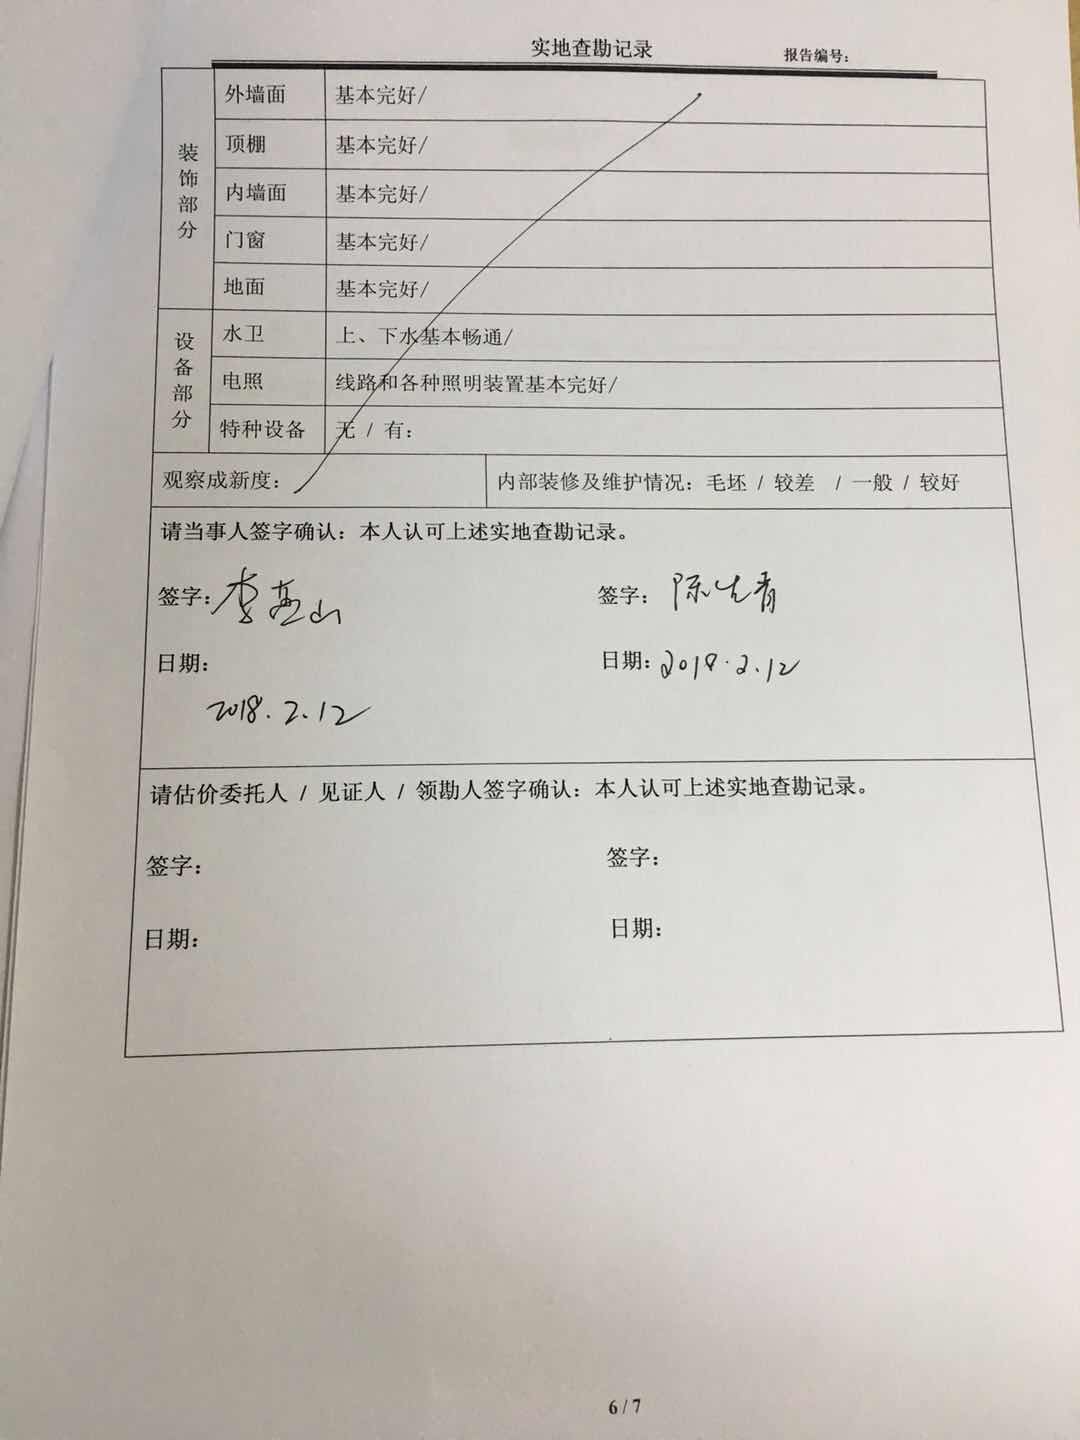 实地查勘记录 报告编号：
装饰部分
外墙面 基本完好/
顶棚 基本完好/
内墙面 基本完好/
门窗 基本完好/
地面 基本完好/
设备部分
水卫 上、下水基本畅通/
电照 线路和各种照明装置基本完好/
特种设备 无 / 有：
观察成新度： 内部装修及维护情况：毛坯 / 较差 / 一般 / 较好
请当事人签字确认：本人认可上述实地查勘记录。
签字：李燕山 签字：陈先青
日期： 日期：2018.2.12
2018.2.12
请估价委托人 / 见证人 / 领勘人签字确认：本人认可上述实地查勘记录。
签字： 签字：
日期： 日期：
6 / 7